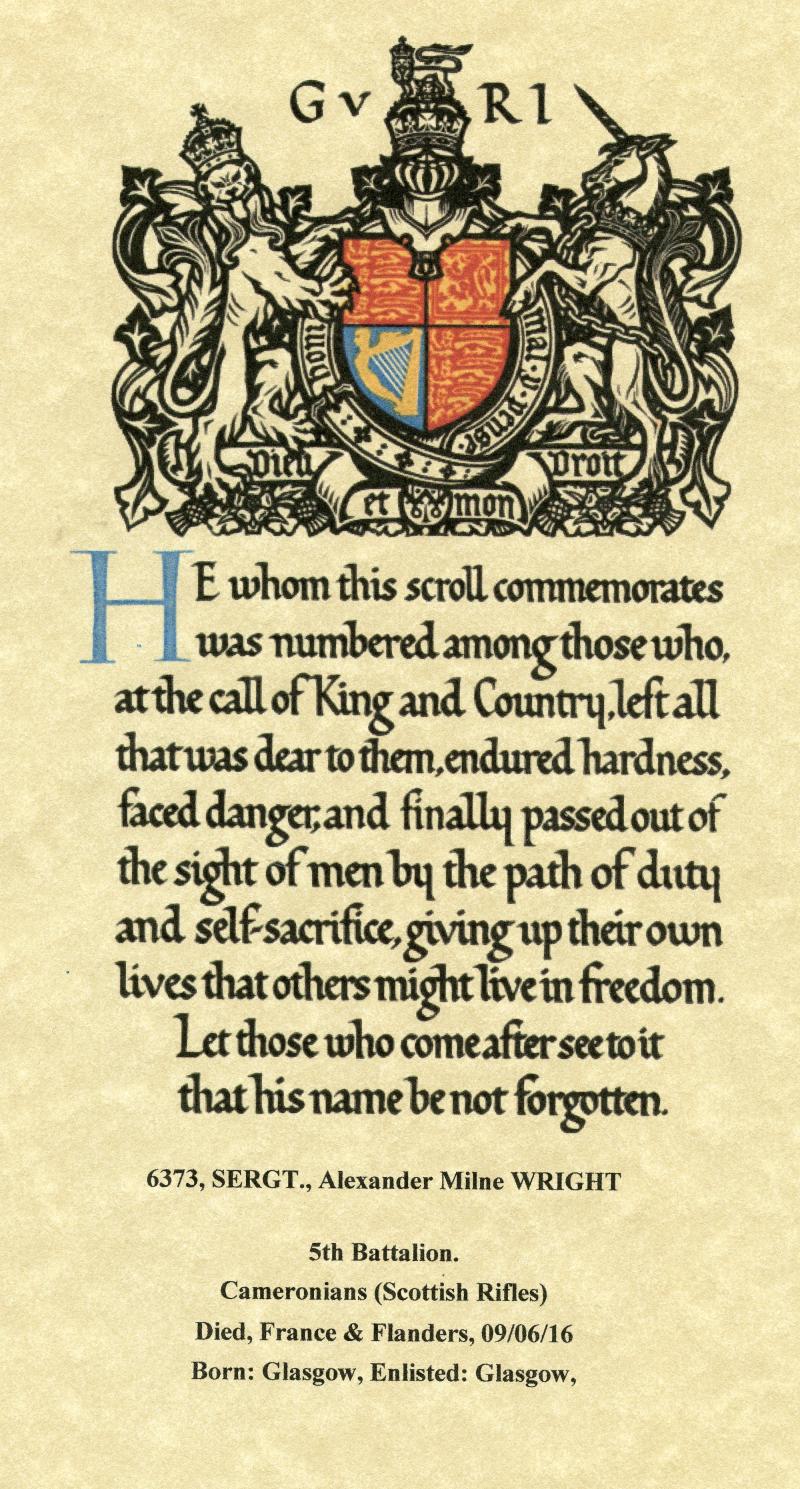 G V R I
hom
mal · y · pense
Dieu
et mon
Droit
HE whom this scroll commemorates
was numbered among those who,
at the call of King and Country, left all
that was dear to them, endured hardness,
faced danger, and finally passed out of
the sight of men by the path of duty
and self-sacrifice, giving up their own
lives that others might live in freedom.
Let those who come after see to it
that his name be not forgotten.
6373, SERGT., Alexander Milne WRIGHT
5th Battalion.
Cameronians (Scottish Rifles)
Died, France & Flanders, 09/06/16
Born: Glasgow, Enlisted: Glasgow,